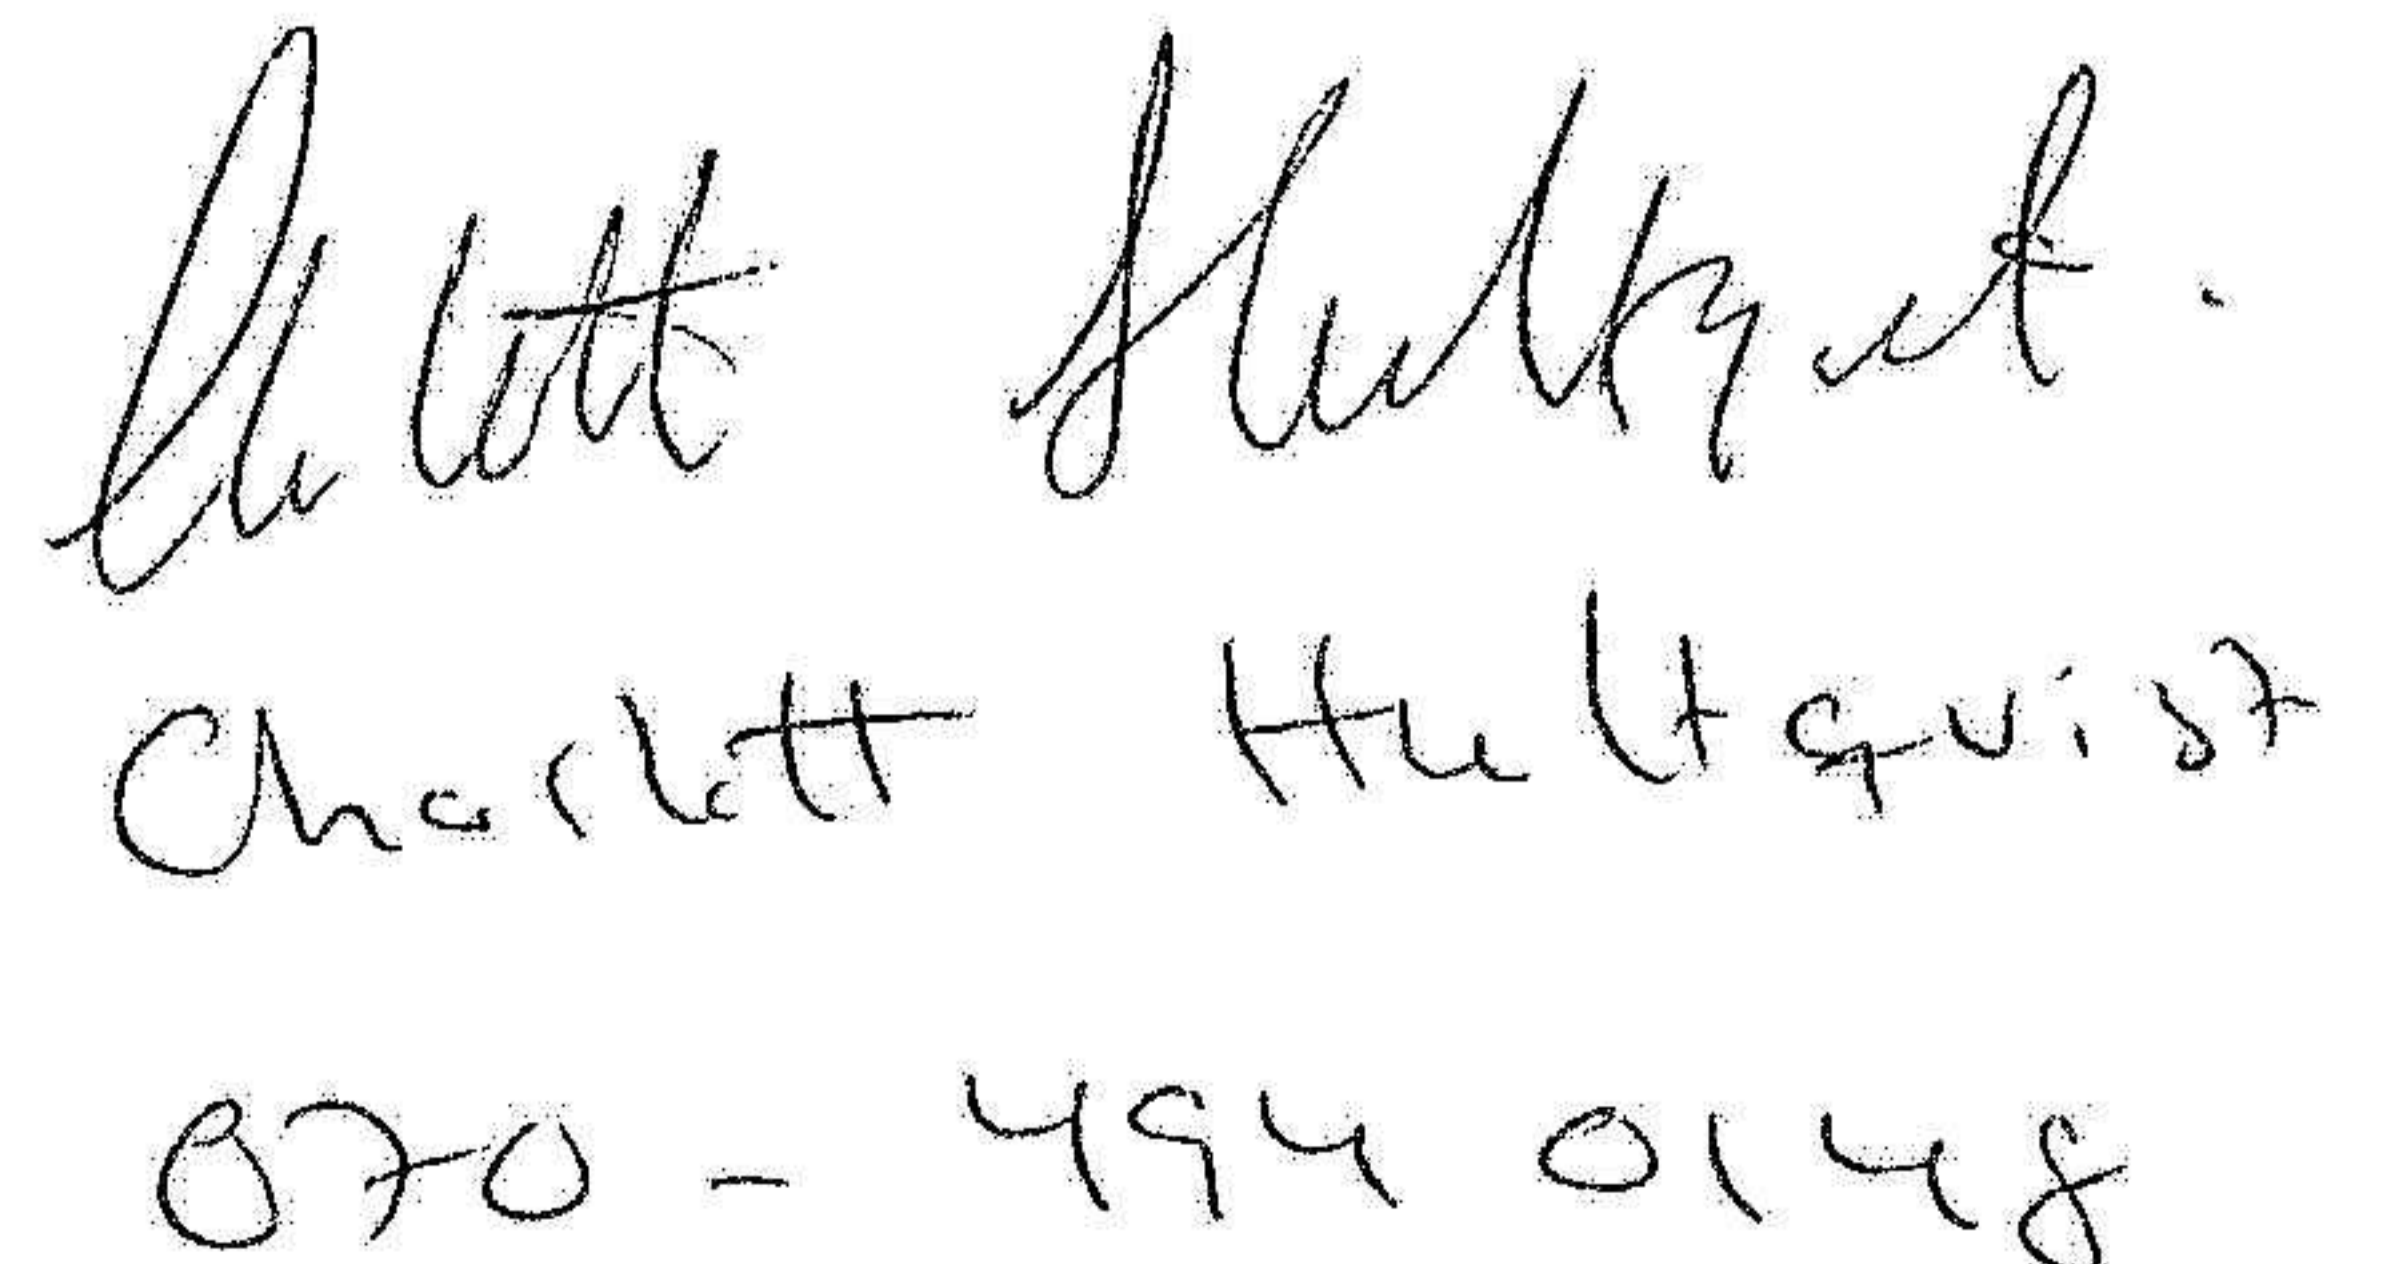 Charlott Hultqvist
Charlott Hultqvist
070 - 494 0148